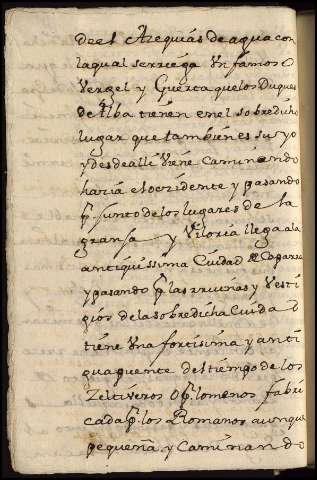 de el Azequias de agua con
la qual se rriega Un famoso
Vergel y Guerta que los Duques
de Alba tienen en el sobredicho
lugar que tambien es suyo
y desde alli Viene Caminando
hacia el ocçidente y pasando
p. junto de los lugares de la
granja y Viloria llega a la
antiquissima Ciudad de Caparra
y pasando p. las rruinas y Vesti
gios de la sobredicha Ciuda d
tiene Una fortisima y anti
gua puente del tiempo de los
Zeltiveros O p. lo menos fabri
cada p. los Romanos aunque
pequeña y Caminan do